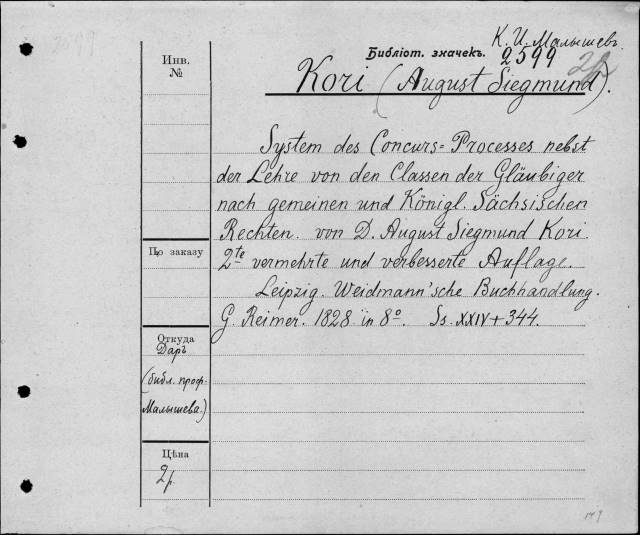 К. И. Малышевъ
Библіот. значекъ.
2599
Kori (August Siegmund).
Инв.
№
System des Concurs=Processes nebst
der Lehre von den Classen der Gläubiger
nach gemeinen und Königl. Sächsischen
Rechten. von D. August Siegmund Kori.
2te vermehrte und verbesserte Auflage.
Leipzig. Weidmann'sche Buchhandlung.
G. Reimer. 1828 in 8º. Ss. XXIV + 344.
По заказу
Откуда
Даръ
(библ. проф.
Малышева.)
Цѣна
2 р.